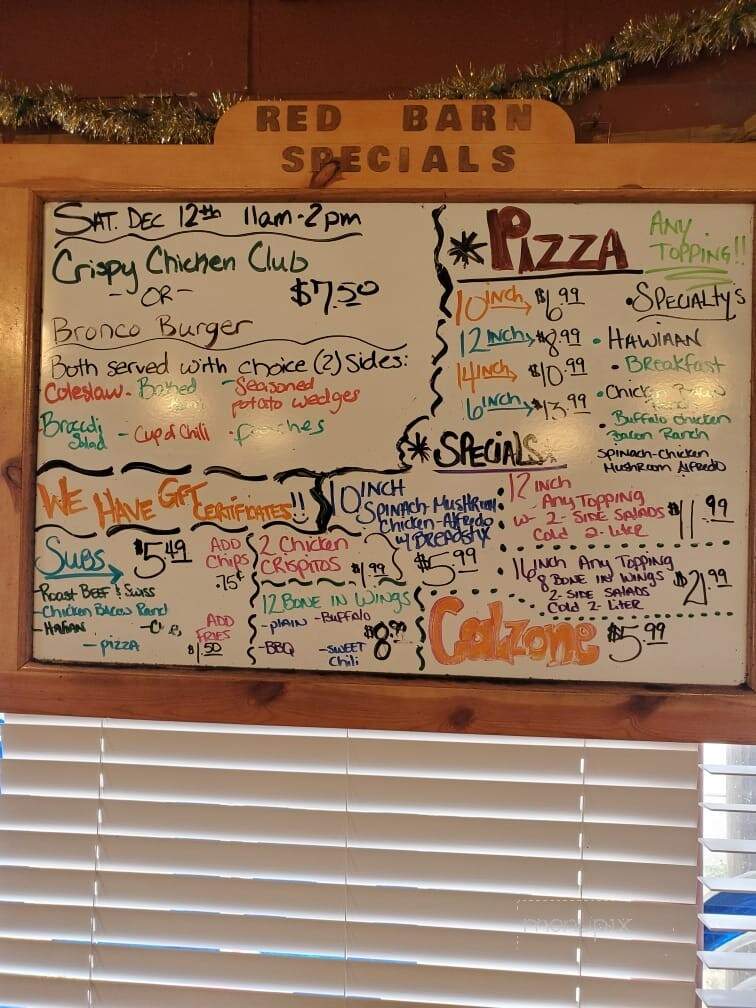 RED BARN
SPECIALS
SAT. DEC 12th 11am-2pm
Crispy Chicken Club
- OR - $7.50
Bronco Burger
Both served with choice (2) Sides:
Coleslaw - Baked
- Seasoned
potato wedges
- Broccoli
Salad
- Cup of Chili
- peaches
WE HAVE GIFT CERTIFICATES!!
SUBS $5.49
ADD
CHIPS
.75¢
- Roast BEEF & SWISS
- Chicken Bacon Ranch
- Italian
- pizza
ADD
FRIES
$1.50
2 Chicken
CRISPITOS $1.99
12 BONE IN WINGS
- PLAIN - Buffalo
$8.99
- BBQ - SWEET
Chili
* PIZZA ANY
TOPPING!!
10 INCH $6.99
12 INCH $8.99
14 INCH $10.99
16 INCH $13.99
• SPECIALTY'S
• HAWIIAN
• BREAKFAST
• Chicken Bacon
Ranch
• Buffalo Chicken
Bacon Ranch
SPINACH-CHICKEN
MUSHROOM Alfredo
* SPECIALS *
10 INCH
SPINACH-MUSHROOM
Chicken-Alfredo
W/ BREADSTIX
$5.99
12 INCH
ANY TOPPING
W- 2- SIDE SALADS
COLD 2-LITER
$11.99
16 INCH ANY TOPPING
8 BONE IN WINGS
2-SIDE SALADS
COLD 2-LITER
$21.99
Calzone $5.99
menupix